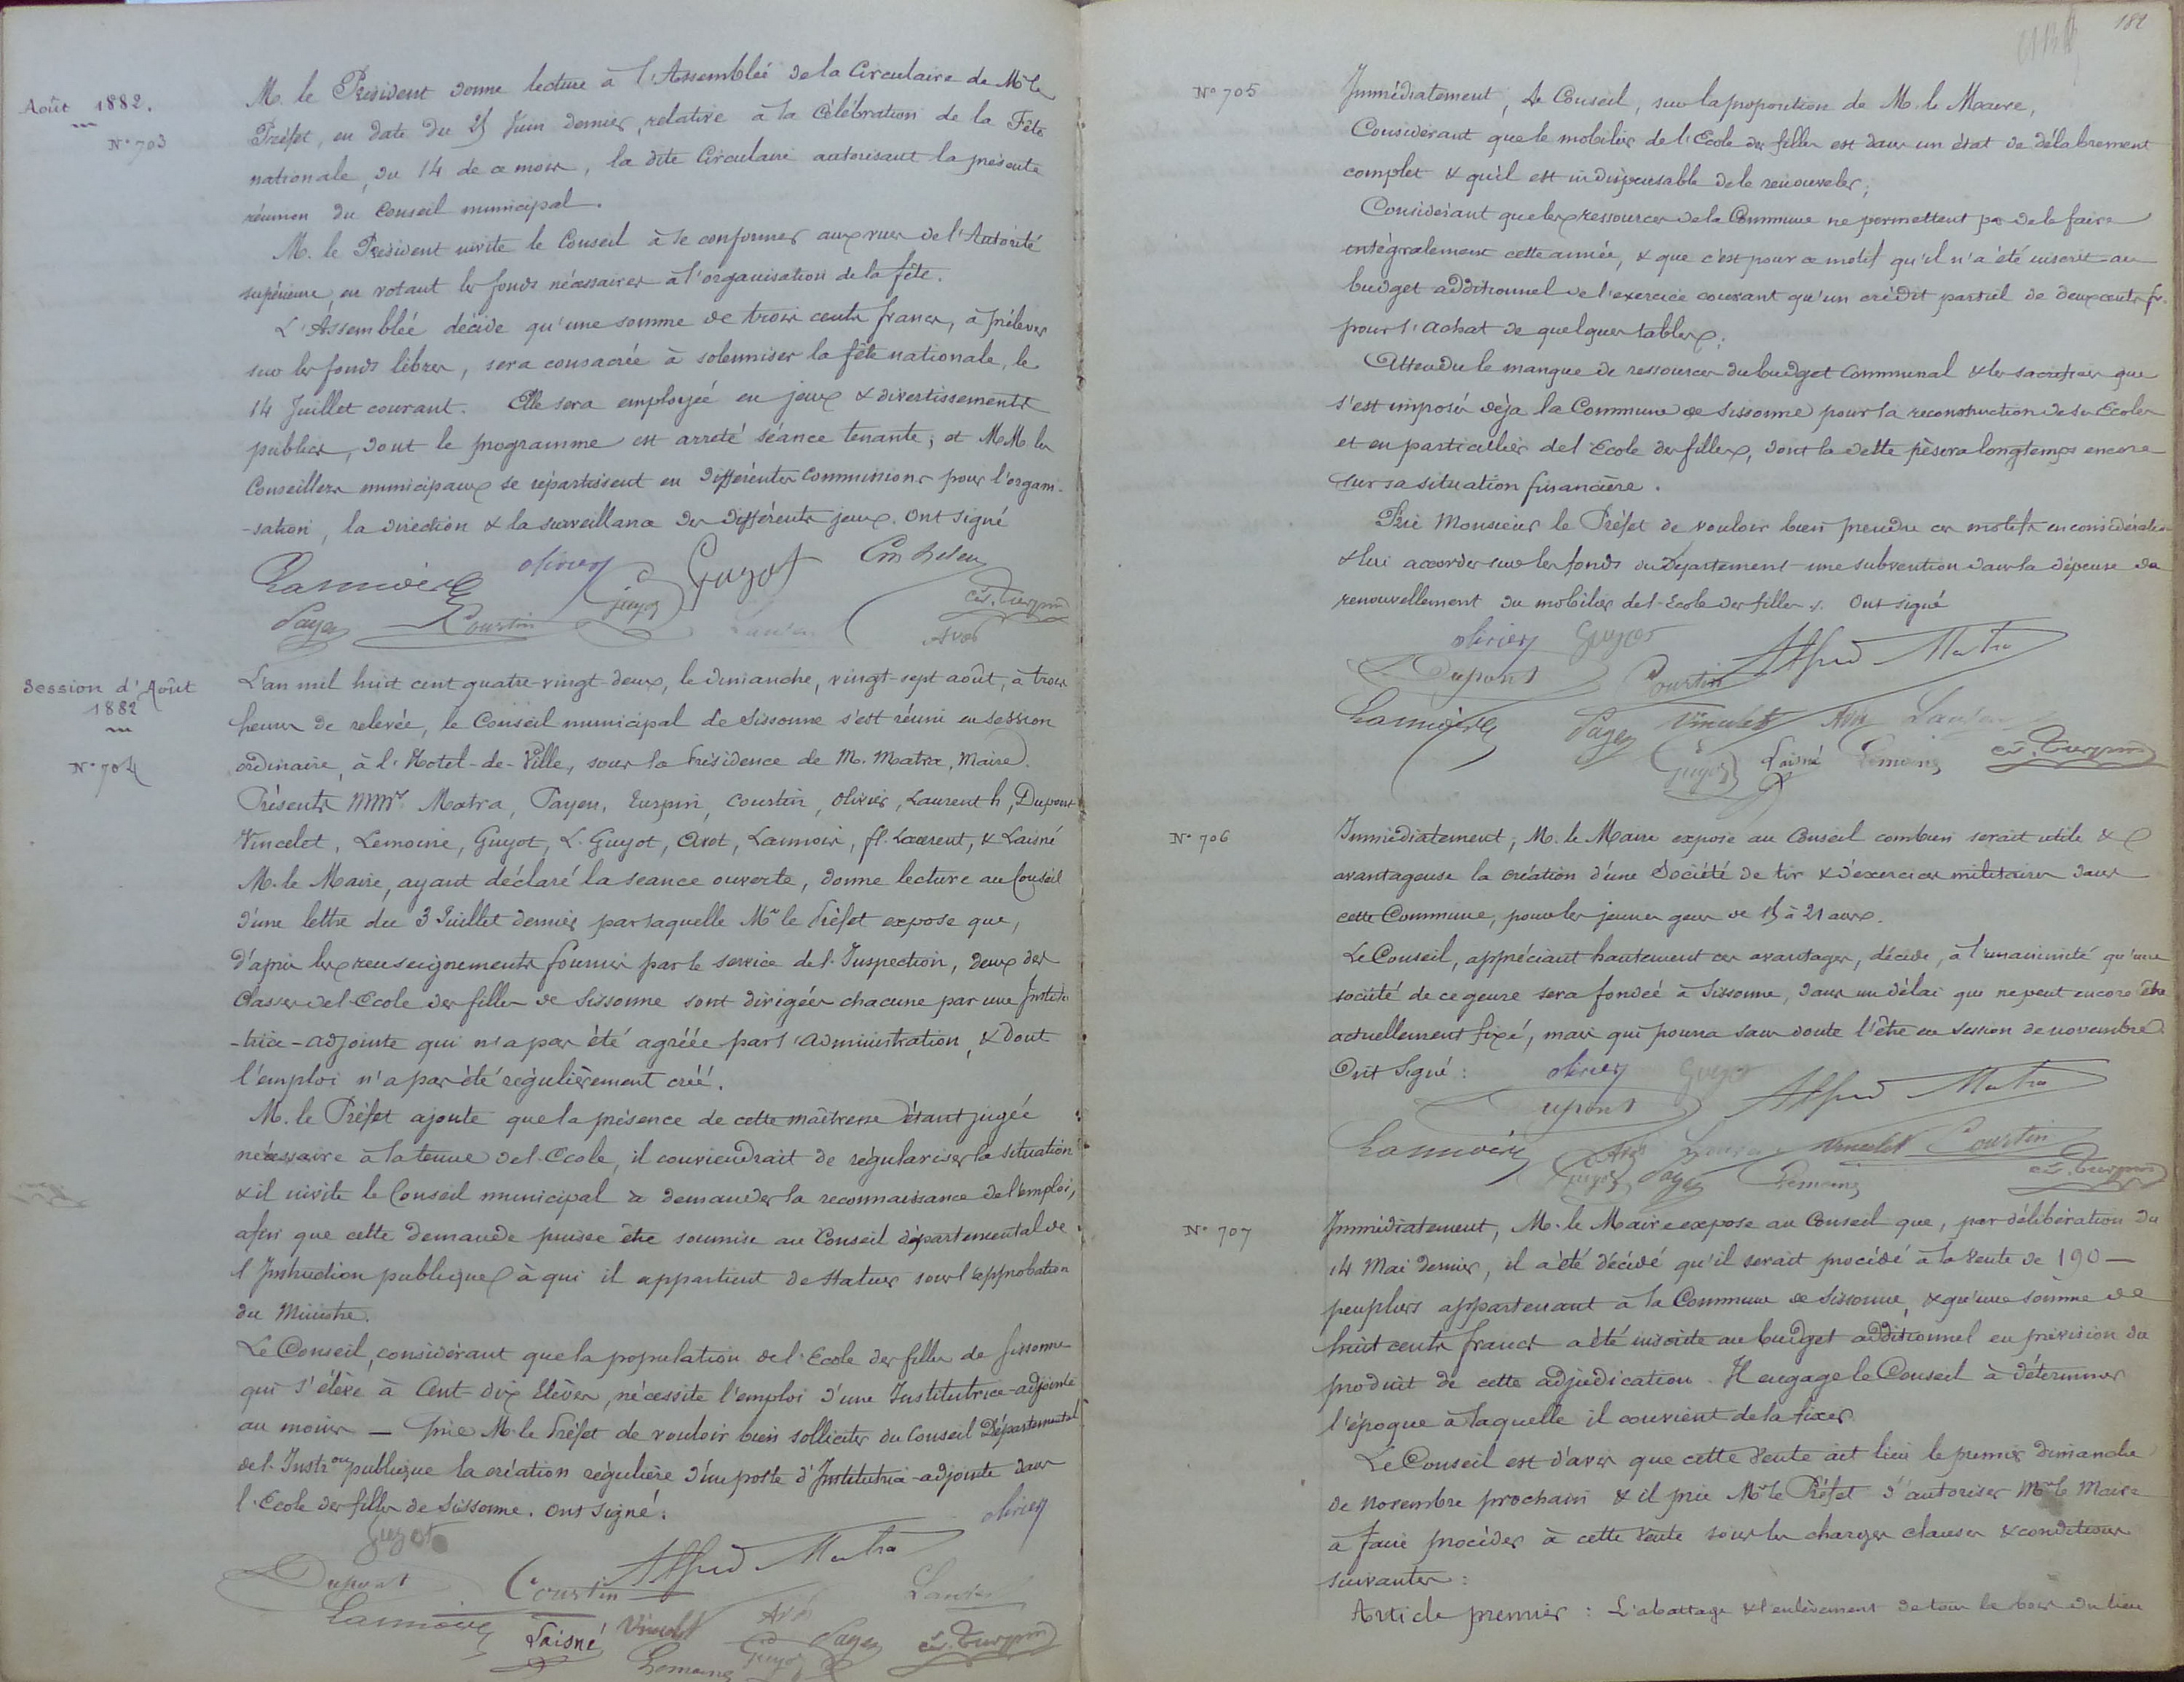 Août 1882.
N° 703
M. le Président donne lecture à l'Assemblée de la Circulaire de Mr le
Préfet, en date du 25 Juin dernier, relative à la Célébration de la Fête
nationale, du 14 de ce mois, la dite Circulaire autorisant la présente
réunion du Conseil municipal.
M. le Président invite le Conseil à se conformer aux vues de l'Autorité
supérieure, en votant les fonds nécessaires à l'organisation de la fête.
L'Assemblée décide qu'une somme de trois cents francs, à prélever
sur les fonds libres, sera consacrée à solenniser la fête nationale, le
14 Juillet courant. Elle sera employée en jeux & divertissements
publics, dont le programme est arrêté séance tenante; et M.M les
Conseillers municipaux se répartissent en différentes commissions pour l'organi-
-sation, la direction & la surveillance des différents jeux. Ont signé
Lannois olivier Guyot
Payen Courtin Guyot Laurent Avot Cés. Turpin
Session d'Août
1882
N° 704
L'an mil huit cent quatre-vingt-deux, le dimanche, vingt-sept août, à trois
heures de relevée, le Conseil municipal de Sissonne s'est réuni en session
ordinaire, à l'Hotel-de-Ville, sous la Présidence de M. Matra, Maire.
Présents MMrs Matra, Payen, Turpin, Courtin, Olivier, Laurent h, Dupont
Vincelet, Lemoine, Guyot, L. Guyot, Avot, Lannois, fl. Laurent, & Laisné
M. le Maire, ayant déclaré la séance ouverte, donne lecture au Conseil
d'une lettre du 3 Juillet dernier par laquelle Mr le Préfet expose que,
d'après les renseignements fournis par le service de l'Inspection, deux des
Classes de l'Ecole des filles de Sissonne sont dirigées chacune par une Institu
-trice-adjointe qui n'a pas été agréée par l'Administration, & dont
l'emploi n'a pas été régulièrement créé.
M. le Préfet ajoute que la présence de cette maîtresse étant jugée
nécessaire à la tenue de l'Ecole, il conviendrait de régulariser la situation
& il invite le Conseil municipal à demander la reconnaissance de l'emploi,
afin que cette demande puisse être soumise au Conseil départemental de
l'Instruction publique à qui il appartient de statuer sous l'approbation
du Ministre.
Le Conseil, considérant que la population de l'Ecole des filles de Sissonne
qui s'élève à Cent-dix Elèves, nécessite l'emploi d'une Institutrice-adjointe
au moins — prie M. le Préfet de vouloir bien solliciter du Conseil Départemental
de l'Instron publique la création régulière d'un poste d'Institutrice-adjointe dans
l'Ecole des filles de Sissonne. Ont signé:
Guyot olivier
Dupont Courtin Alfred Matra Laurent
Lannois Laisné Vincelet Avot Payen Cés. Turpin
Lemoine Guyot
182
N° 705
Immédiatement, Le Conseil, sur la proposition de M. le Maire,
Considérant que le mobilier de l'Ecole des filles est dans un état de délabrement
complet & qu'il est indispensable de le renouveler;
Considérant que les ressources de la Commune ne permettent pas de le faire
intégralement cette année, & que c'est pour ce motif qu'il n'a été inscrit au
budget additionnel de l'exercice courant qu'un crédit partiel de deux cents fr.
pour l'achat de quelques tables;
Attendu le manque de ressources du budget Communal & les sacrifices que
s'est imposés déja la Commune de Sissonne pour la reconstruction de ses Ecoles
et en particulier de l'Ecole des filles, dont la dette pèsera longtemps encore
sur sa situation financière.
Prie Monsieur le Préfet de vouloir bien prendre ces motifs en considération
& lui accorder sur les fonds du Département une subvention dans la dépense du
renouvellement du mobilier de l'Ecole des filles. Ont signé
olivier Guyot
Dupont Courtin Alfred Matra
Lannois Payen Vincelet Avot Laurent
Guyot Laisné Lemoine Cés. Turpin
N° 706
Immédiatement, M. le Maire expose au Conseil combien serait utile &
avantageuse la création d'une Société de tir & d'exercices militaires dans
cette Commune, pour les jeunes gens de 15 à 21 ans.
Le Conseil, appréciant hautement ces avantages, décide, à l'unanimité qu'une
société de ce genre sera fondée à Sissonne, dans un délai qui ne peut encore être
actuellement fixé, mais qui pourra sans doute l'être en session de novembre.
Ont Signé: olivier Guyot
Dupont Alfred Matra
Lannois Avot Laurent Vincelet Courtin
Guyot Payen Lemoine Cés. Turpin
N° 707
Immédiatement, M. le Maire expose au Conseil que, par délibération du
14 Mai dernier, il a été décidé qu'il serait procédé à la Vente de 190 —
peupliers appartenant à la Commune de Sissonne, & qu'une somme de
huit cents francs a été inscrite au budget additionnel en prévision du
produit de cette adjudication. Il engage le Conseil à déterminer
l'époque à laquelle il convient de la fixer.
Le Conseil est d'avis que cette Vente ait lieu le premier dimanche
de novembre prochain & il prie Mr le Préfet d'autoriser Mr le Maire
à faire procéder à cette Vente sous les charges clauses & conditions
suivantes:
Article premier : L'abattage & l'enlèvement de tous les bois du lieu